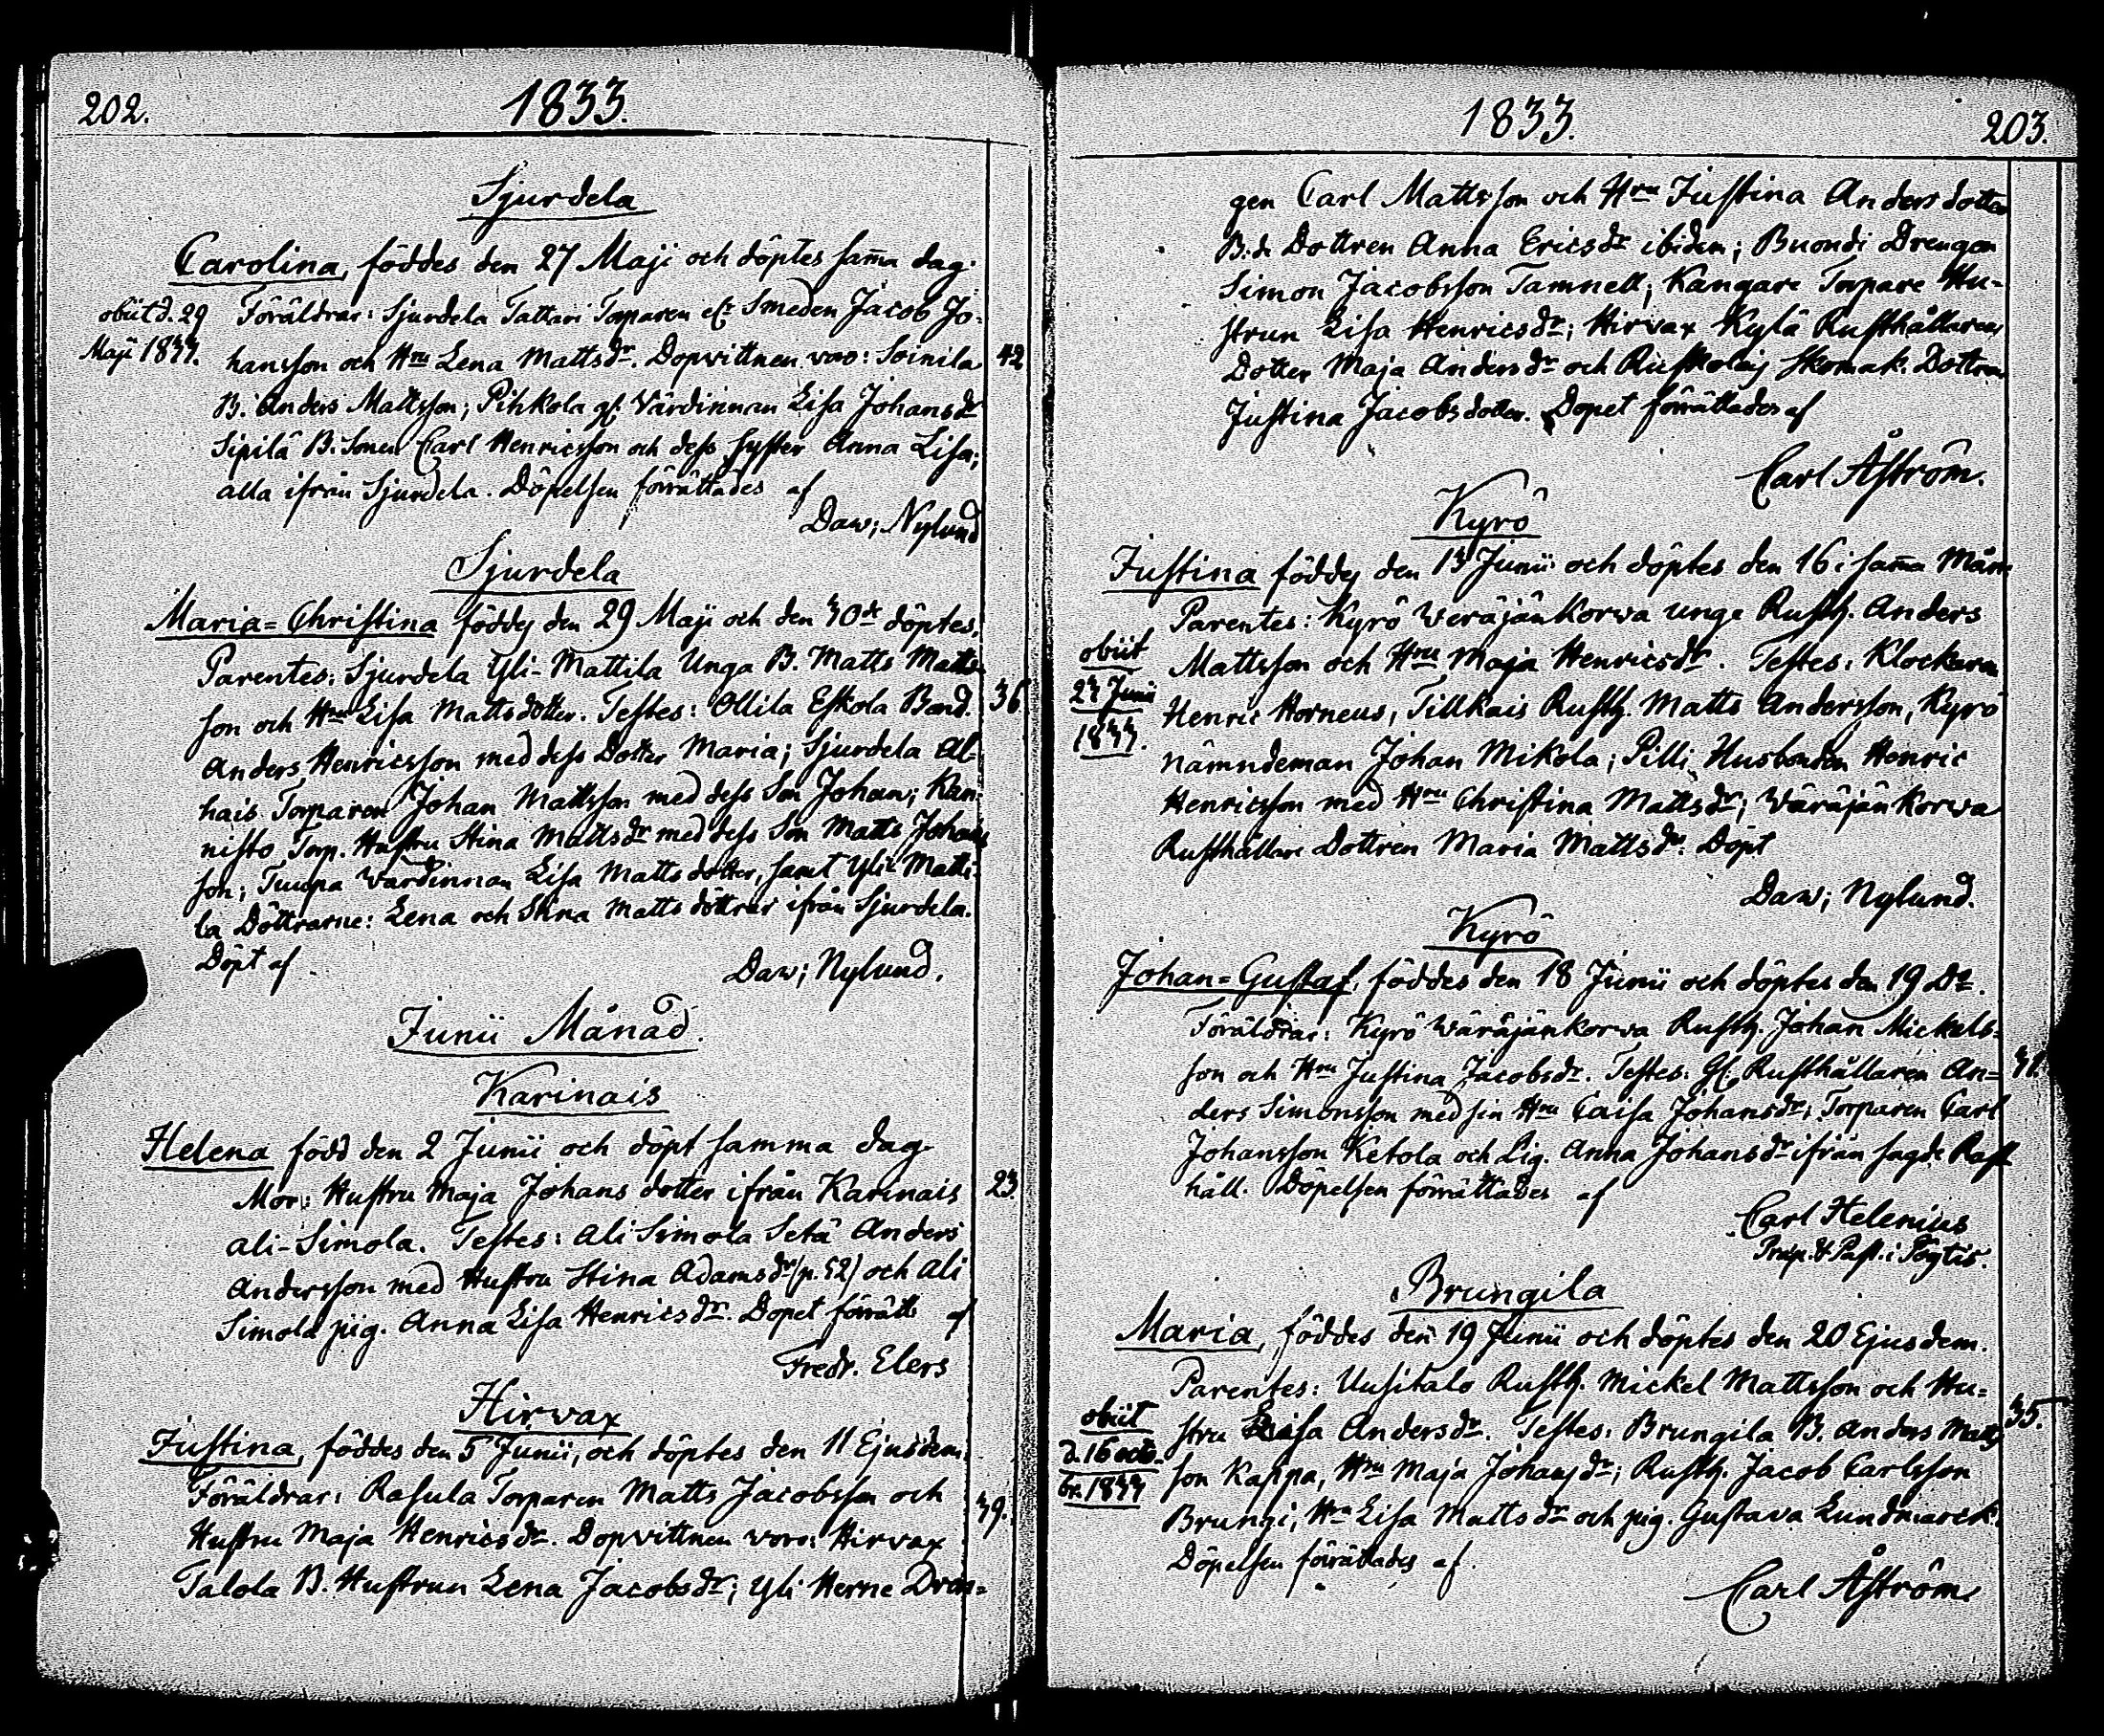 202.
1833.
Sjurdela
Carolina, föddes den 27 Maji och döptes sam̄a dag.
obiit d. 29
Maji 1833.
Föräldrar: Sjurdela Tattari Torparen och Smeden Jacob Jo-
hansson och Hru Lena Mattsdr. Dopvittnen voro: Soinila
42
B. Anders Mattsson; Pihkola gf. Värdinnan Lisa Johansdr
Sipilä B. Sonen Carl Henricsson och dess syster Anna Lisa;
alla ifrån Sjurdela. Döpelsen förrättades af
Daw; Nylund
Sjurdela
Maria=Christina föddes den 29 Maji och den 30de döptes.
Parentes: Sjurdela Yli-Mattila Unga B. Matts Matts-
son och Hru Lisa Mattsdotter. Testes: Ollila Eskola Bond.
36
Anders Henricsson med dess Dotter Maria; Sjurdela Al-
hais Torparen Johan Mattsson med dess Son Johan; Kan-
nisto Torp. Hustru Stina Mattsdr med dess Son Matts Johans
son; Tuupa Värdinnan Lisa Matts dotter, samt Yli Matti-
la Döttrarne: Lena och Stina Matts döttrar ifrån Sjurdela.
Döpt af
Daw; Nylund.
Junii Månad.
Karinais
Helena född den 2 Junii och döpt samma dag.
Mor: Hustru Maja Johans dotter ifrån Karinais
23.
Ali-Simola. Testes: Ali Simola Setä Anders
Andersson med Hustru Stina Adamsdr (p. 52) och Ali
Simola pig. Anna Lisa Henricsdr. Dopet förrätts af
Fredr. Elers
Hirvax
Justina, föddes den 5 Junii, och döptes den 11 Ejusdem.
Föräldrar: Rasula Torparen Matts Jacobsson och
39.
Hustru Maja Henricsdr. Dopvittnen voro: Hirvax
Talola B. Hustrun Lena Jacobsdr; Yli Herne Dren-
1833.
203.
gen Carl Mattsson och Hru Justina Anders dotter
B.de Dottren Anna Ericsdr ibidem; Buondi Drengen
Simon Jacobsson Tamnell; Kangare Torpare Hu-
strun Lisa Henricsdr; Hirvax Kylä Rusthållarens
Dotter Maja Andersdr och Skomak. Dottren
Justina Jacobsdotter. Dopet förrättades af
Carl Åström.
Kyrö
Justina föddes den 13 Junii och döptes den 16 i sam̄a Mån
Parentes: Kyrö Weräjänkorwa unge Rusth. Anders
obiit
23 Junii
1833.
Mattsson och Hru Maja Henricsdr. Testes: Klockaren
Henric Horneus, Tillkais Rusth. Matts Andersson, Kyro
nämndeman Johan Mikola; Pilli Husbonden Henric
Henricsson med Hru Christina Mattsdr; Wäräjänkorwa
Rusthållare Dottren Maria Mattsdr. Döpt
Daw; Nylund.
Kyrö
Johan=Gustaf, föddes den 18 Junii och döptes den 19 Do.
Föräldrar: Kyrö Wäräjänkorwa Rusth. Johan Mickels-
son och Hru Justina Jacobsdr. Testes: Gl. Rusthållaren An-
31.
ders Simonsson med sin Hru Caisa Johansdr; Torparen Carl
Johansson Ketola och Pig. Anna Johansdr ifrån sagde Rust
håll. Döpelsen förrättades af
Carl Helenius
Præp. & Past. i Pöytis.
Brungila
Maria, föddes den 19 Junii och döptes den 20 Ejusdem.
Parentes: Uusitalo Rusth. Mickel Mattsson och Hu-
obiit
d. 16 octo-
br. 1833
stru Lisa Andersdr. Testes: Brungila B. Anders Matts
35.
son Kappa, Hru Maja Johansdr; Rusth. Jacob Carlsson
Brungi, Hru Lisa Mattsdr och pig. Gustava Lundmarck.
Döpelsen förrättades af.
Carl Åström.